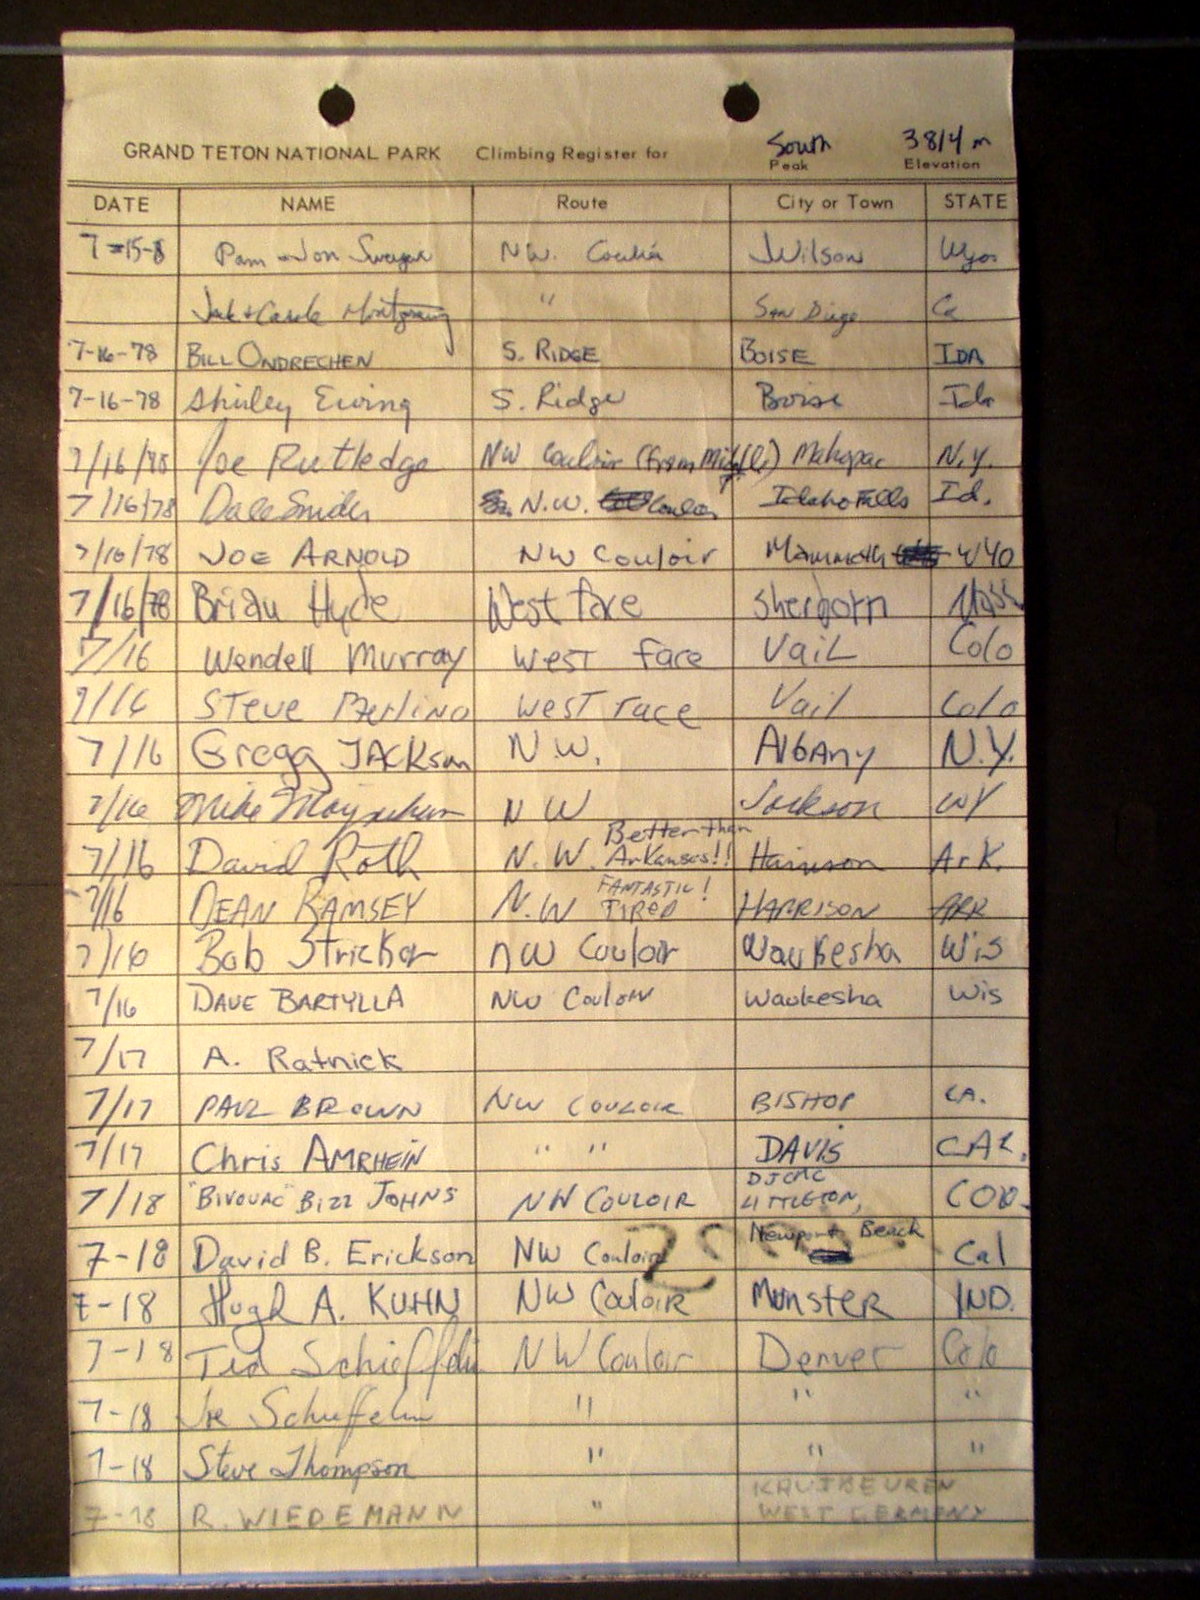 GRAND TETON NATIONAL PARK Climbing Register for South 3814 m
Peak Elevation
DATE NAME Route City or Town STATE
7-15-8 Pam Jon NW. Wilson Wyo
Jack + Carole Montgomery " San Diego Ca
7-16-78 BILL ONDRECHEN S. RIDGE BOISE IDA
7-16-78 Shirley Ewing S. Ridge Boise Ida
7/16/78 Joe Rutledge NW Couloir (from Middle) Mahopac N.Y.
7/16/78 Dale Snider N.W. Couloir Idaho Falls Id.
7/16/78 JOE ARNOLD NW Couloir Mammoth WYO
7/16/78 Brian Hyde West face Sherborn Mass
7/16 Wendell Murray West face Vail Colo
7/16 Steve West face Vail Colo
7/16 Gregg JACKson N.W. AlbAny N.Y.
7/16 Mike NW Jackson WY
7/16 David Roth N.W. Better than Arkansas!! Harrison Ark.
7/16 DEAN RAMSEY N.W FANTASTIC! TIRED HARRISON ARK
7/16 Bob Stricker NW Couloir Waukesha Wis
7/16 DAVE BARTYLLA NW Couloir Waukesha Wis
7/17 A. Ratnick
7/17 PAUL BROWN NW COULOIR BISHOP CA.
7/17 Chris AMRHEIN " " DAVIS CAL.
7/18 "BIVOUAC" BILL JOHNS NW COULOIR LITTLETON, COLO.
7-18 David B. Erickson NW Couloir Newport Beach Cal
7-18 Hugh A. KUHN NW Couloir Munster IND.
7-18 Ted Schieffelin NW Couloir Denver Colo
7-18 Schieffelin " " "
7-18 Steve Thompson " " "
7-18 R. WIEDEMANN " KAUFBEUREN
WEST GERMANY